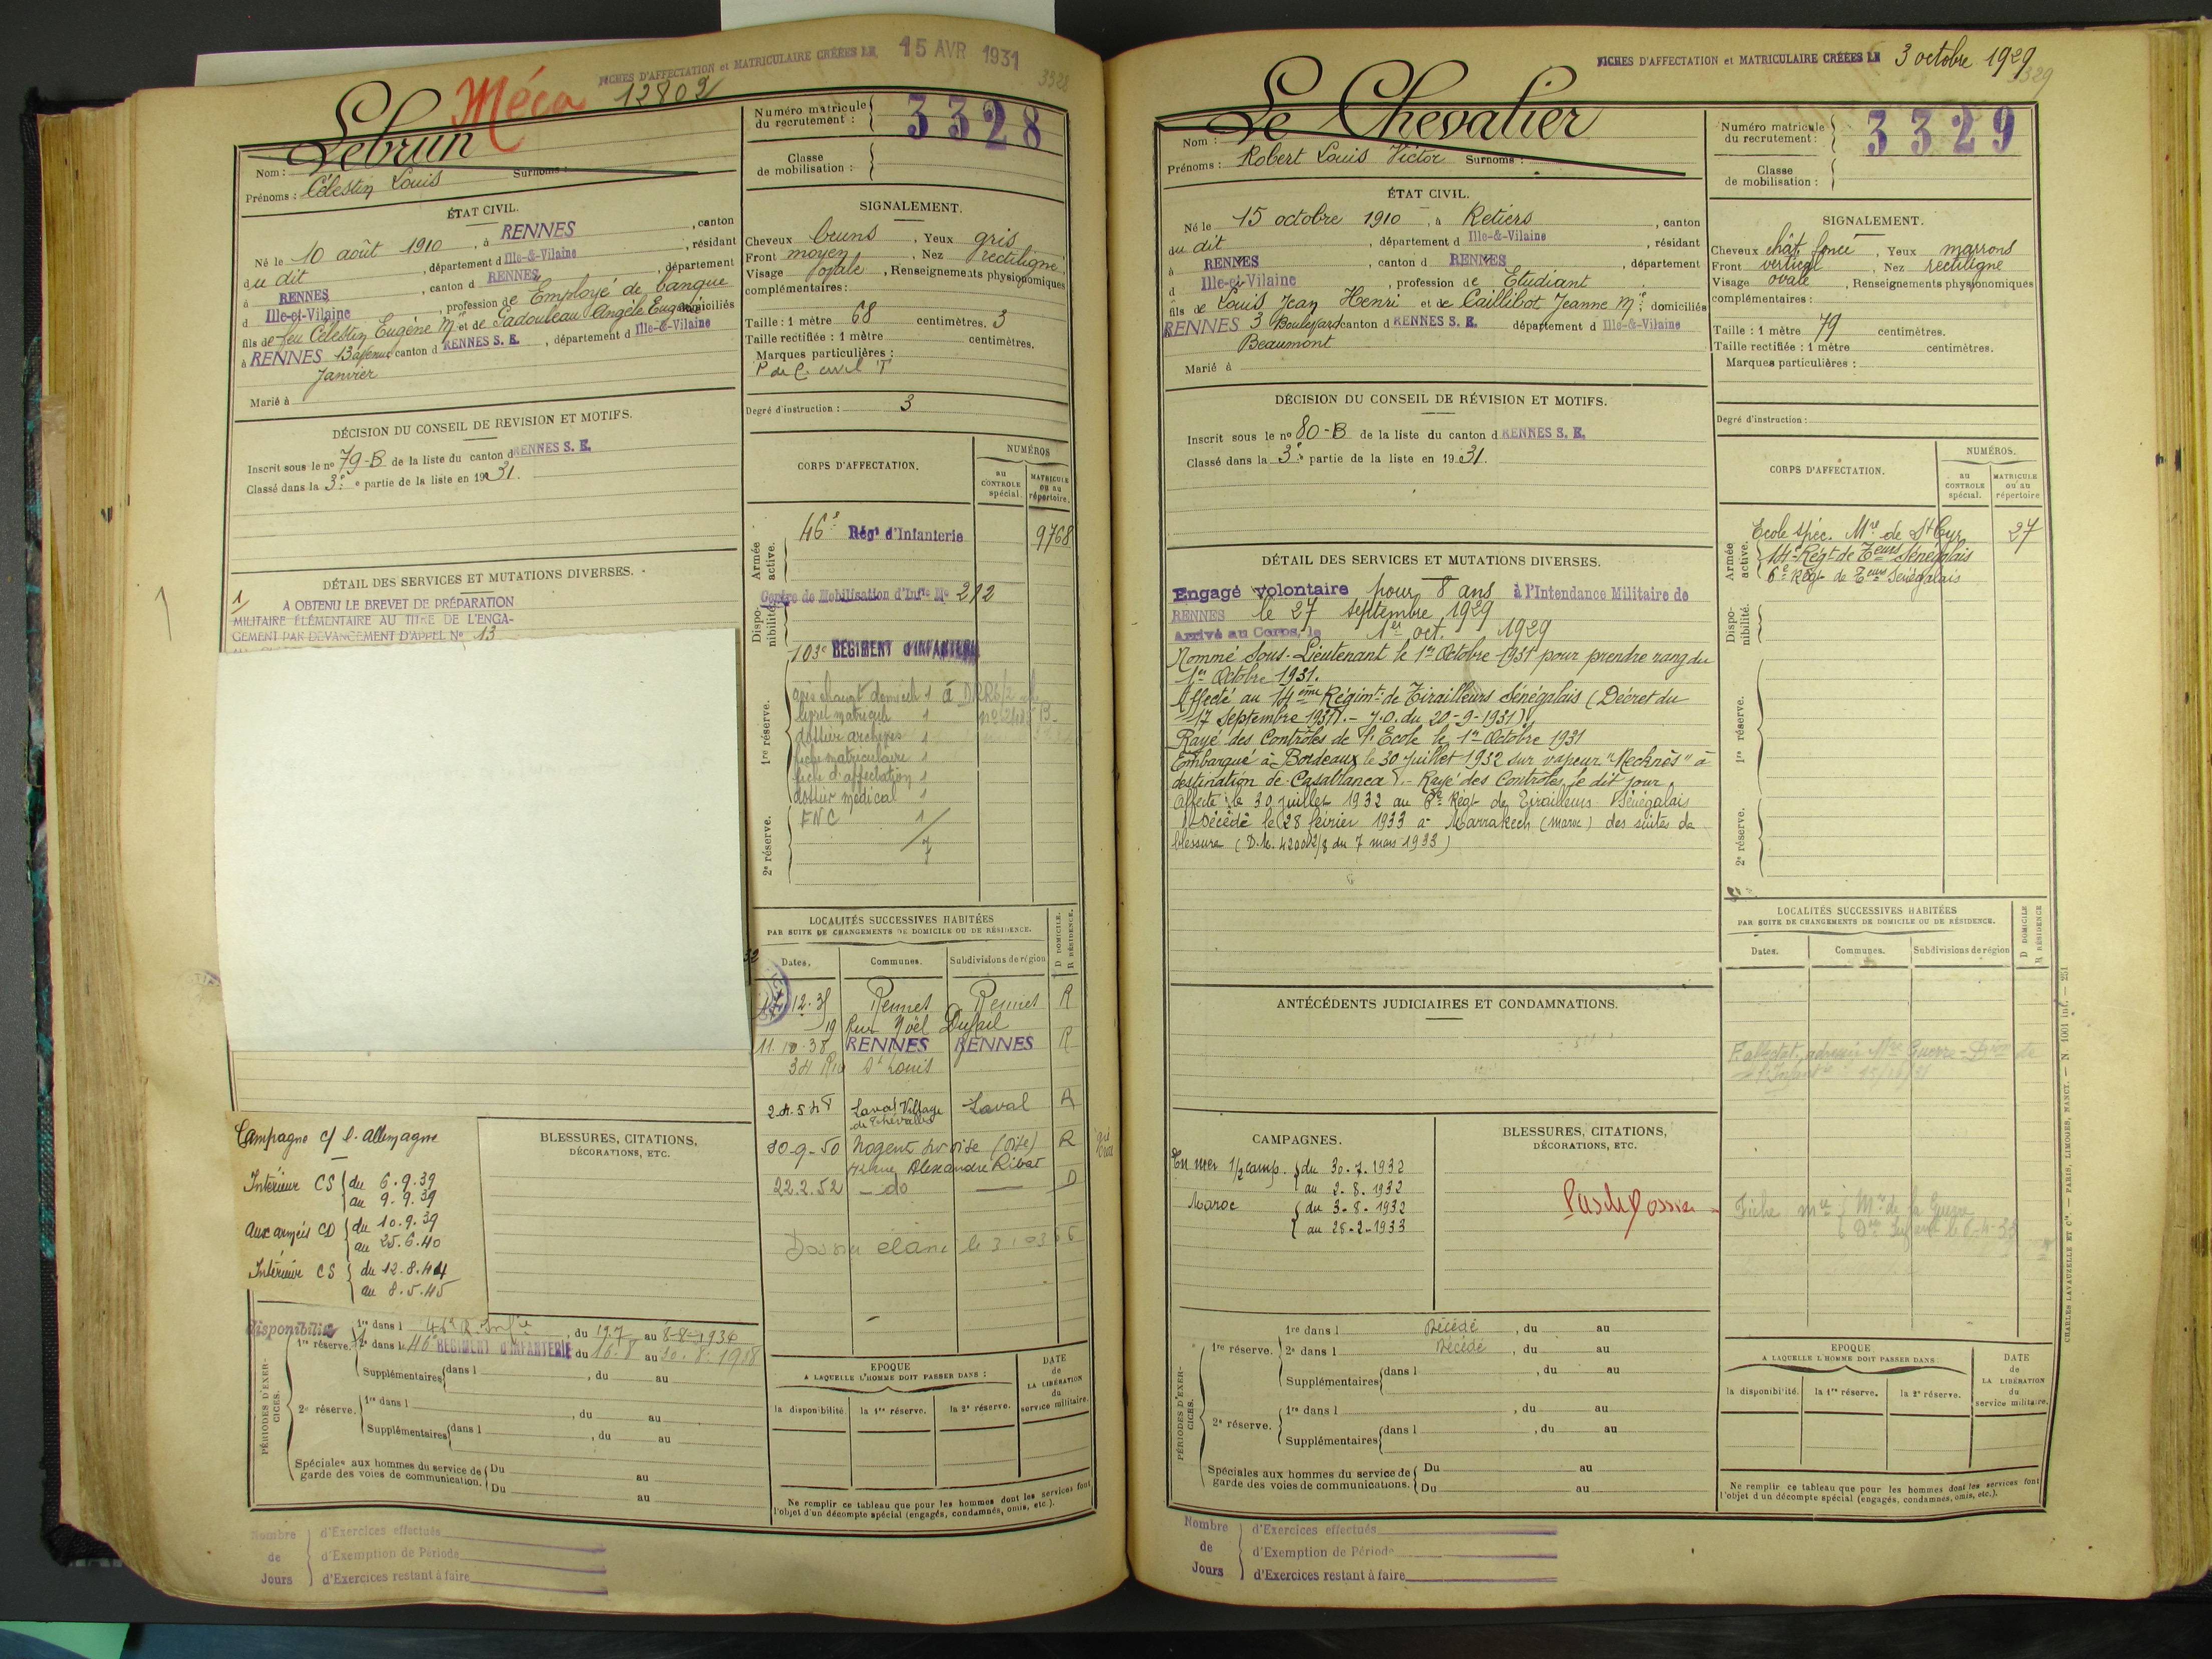 FICHES D'AFFECTATION et MATRICULAIRE CRÉÉES LE 15 AVR 1931
3328
Méca 12802
Nom : Lebrun
Surnoms :
Prénoms : Célestin Louis
Numéro matricule du recrutement : 3328
Classe de mobilisation :
ÉTAT CIVIL.
Né le 10 août 1910, à RENNES, canton
du dit, département d Ille-&-Vilaine, résidant
à RENNES, canton d RENNES, département
d Ille-et-Vilaine, profession de Employé de banque
fils de feu Célestin Eugène Mie et de Gadouleau Angèle Eugénie domiciliés
à RENNES 13 avenue canton d RENNES S. E., département d Ille-&-Vilaine
Janvier
Marié à
SIGNALEMENT.
Cheveux bruns, Yeux gris
Front moyen, Nez rectiligne
Visage ovale, Renseignements physionomiques
complémentaires :
Taille : 1 mètre 68 centimètres. 3
Taille rectifiée : 1 mètre centimètres.
Marques particulières :
P de C. civil T
Degré d'instruction : 3
DÉCISION DU CONSEIL DE REVISION ET MOTIFS.
Inscrit sous le no 79-B de la liste du canton d RENNES S. E.
Classé dans la 3e partie de la liste en 1931.
DÉTAIL DES SERVICES ET MUTATIONS DIVERSES.
1/ A OBTENU LE BREVET DE PRÉPARATION
MILITAIRE ÉLÉMENTAIRE AU TITRE DE L'ENGA-
GEMENT PAR DEVANCEMENT D'APPEL No 13
CORPS D'AFFECTATION.
NUMÉROS
au CONTROLE spécial.
MATRICULE ou au répertoire.
Armée active.
46e Régt d'Infanterie 9768
Disponibilité.
Centre de Mobilisation d'Infie No 212
103e RÉGIMENT D'INFANTERIE
1re réserve.
livret matricule 1
dossier archives 1
fiche matriculaire 1
fiche d'affectation 1
dossier médical 1
FNC 1
7
2e réserve.
LOCALITÉS SUCCESSIVES HABITÉES
PAR SUITE DE CHANGEMENTS DE DOMICILE OU DE RÉSIDENCE.
Dates. Communes. Subdivisions de région
D DOMICILE. R RÉSIDENCE.
12.35 Rennes Rennes R
19 Rue Noël Dufail
11.10.38 RENNES RENNES R
34 Rue St Louis
2.4.548 Laval Village Laval R
30-9-50 Nogent sur oise (Oise) R
rue Alexandre Ribot
22.2.52 — do — D
Campagne c/ l. allemagne
Intérieur CS du 6.9.39
au 9.9.39
Aux armées CD du 10.9.39
au 25.6.40
Intérieur CS du 12.8.44
au 8.5.45
BLESSURES, CITATIONS,
DÉCORATIONS, ETC.
PÉRIODES D'EXERCICES.
disponibilité 1re dans l 46e R. Infie, du 19.7 au 8-8-1934
1re réserve. 2e dans le 46e RÉGIMENT D'INFANTERIE du 16-8 au 30-8-1938
Supplémentaires dans l , du au
2e réserve. 1re dans l , du au
Supplémentaires dans l , du au
Spéciales aux hommes du service de garde des voies de communication. Du au
Du au
EPOQUE
A LAQUELLE L'HOMME DOIT PASSER DANS :
la disponibilité. la 1re réserve. la 2e réserve.
DATE de LA LIBÉRATION du service militaire.
Ne remplir ce tableau que pour les hommes dont les services font
l'objet d'un décompte spécial (engagés, condamnés, omis, etc.).
Nombre de Jours
d'Exercices effectués
d'Exemption de Période
d'Exercices restant à faire
FICHES D'AFFECTATION et MATRICULAIRE CRÉÉES LE 3 octobre 1929
3329
Nom : Le Chevalier
Prénoms : Robert Louis Victor Surnoms :
Numéro matricule du recrutement : 3329
Classe de mobilisation :
ÉTAT CIVIL.
Né le 15 octobre 1910, à Retiers, canton
du dit, département d Ille-&-Vilaine, résidant
à RENNES, canton d RENNES, département
d Ille-et-Vilaine, profession de Étudiant
fils de Louis Jean Henri et de Caillibot Jeanne Mie domiciliés
RENNES 3 Boulevard canton d RENNES S. E. département d Ille-&-Vilaine
Beaumont
Marié à
SIGNALEMENT.
Cheveux chât foncé, Yeux marrons
Front vertical, Nez rectiligne
Visage ovale, Renseignements physionomiques
complémentaires :
Taille : 1 mètre 79 centimètres.
Taille rectifiée : 1 mètre centimètres.
Marques particulières :
Degré d'instruction :
DÉCISION DU CONSEIL DE RÉVISION ET MOTIFS.
Inscrit sous le no 80-B de la liste du canton d RENNES S. E.
Classé dans la 3e partie de la liste en 1931.
DÉTAIL DES SERVICES ET MUTATIONS DIVERSES.
Engagé volontaire pour 8 ans à l'Intendance Militaire de
RENNES le 27 septembre 1929
Arrivé au Corps, le 1er oct. 1929
Nommé Sous-Lieutenant le 1er Octobre 1931 pour prendre rang du
1er Octobre 1931.
Affecté au 14ème Régimt de Tirailleurs Sénégalais (Décret du
17 Septembre 1931. - J.O. du 20-9-1931)
Rayé des Contrôles de l'Ecole le 1er Octobre 1931
Embarqué à Bordeaux le 30 juillet 1932 sur vapeur "Mecknès" à
destination de Casablanca. Rayé des Contrôles le dit jour.
Affecté le 30 juillet 1932 au 6e Régt de Tirailleurs Sénégalais
Décédé le 28 février 1933 à Marrakech (Maroc) des suites de
blessure (D.M. 42002/8 du 7 mars 1933)
CORPS D'AFFECTATION.
NUMÉROS.
au CONTROLE spécial.
MATRICULE ou au répertoire
Armée active.
Ecole spéc. Mre de St Cyr 27
14e Régt de Teurs Sénégalais
6e Régt de Teurs Sénégalais
Disponibilité.
1re réserve.
2e réserve.
LOCALITÉS SUCCESSIVES HABITÉES
PAR SUITE DE CHANGEMENTS DE DOMICILE OU DE RÉSIDENCE.
Dates. Communes. Subdivisions de région
D DOMICILE R RÉSIDENCE
ANTÉCÉDENTS JUDICIAIRES ET CONDAMNATIONS.
CAMPAGNES.
En mer 1/2 camp. du 30.7.1932
au 2.8.1932
Maroc du 3-8-1932
au 28-2-1933
BLESSURES, CITATIONS,
DÉCORATIONS, ETC.
Pas de Dossier
PÉRIODES D'EXERCICES.
1re réserve. 1re dans l Décédé, du au
2e dans l Décédé, du au
Supplémentaires dans l , du au
2e réserve. 1re dans l , du au
Supplémentaires dans l , du au
Spéciales aux hommes du service de garde des voies de communications. Du au
Du au
EPOQUE
A LAQUELLE L'HOMME DOIT PASSER DANS :
la disponibilité. la 1re réserve. la 2e réserve.
DATE de LA LIBÉRATION du service militaire.
Ne remplir ce tableau que pour les hommes dont les services font
l'objet d'un décompte spécial (engagés, condamnés, omis, etc.).
CHARLES LAVAUZELLE ET Cie — PARIS, LIMOGES, NANCY. — N. 1001 inf. — 251
Nombre de Jours
d'Exercices effectués
d'Exemption de Période
d'Exercices restant à faire